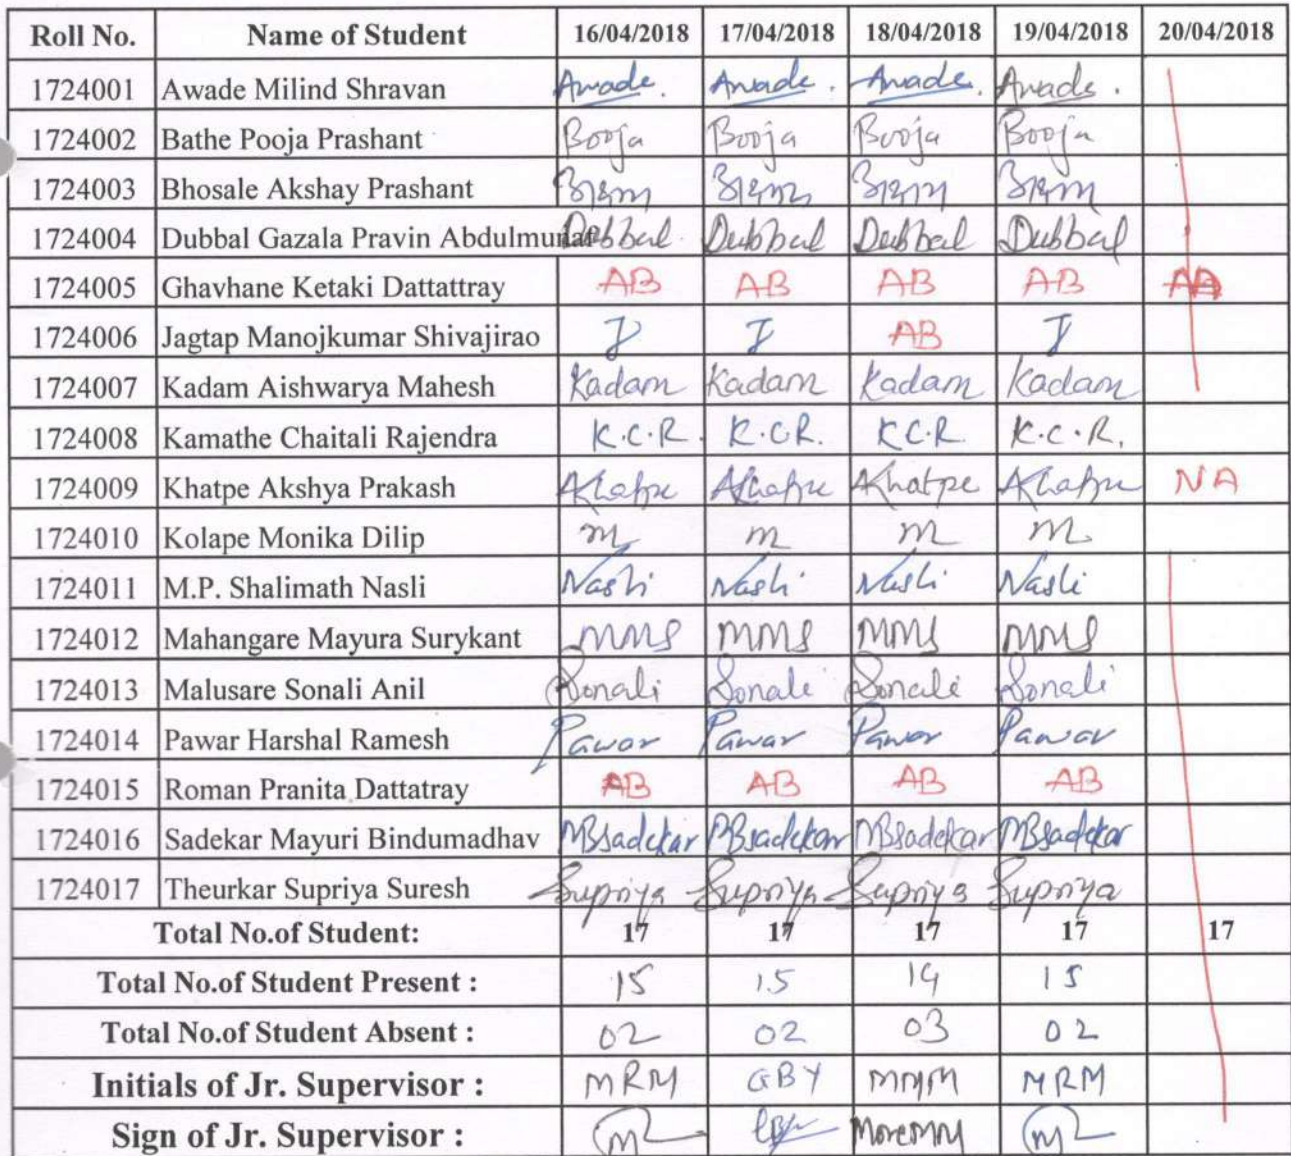 Roll No. Name of Student 16/04/2018 17/04/2018 18/04/2018 19/04/2018 20/04/2018
1724001 Awade Milind Shravan Awade. Awade. Awade. Awade.
1724002 Bathe Pooja Prashant Booja Booja Booja Booja
1724003 Bhosale Akshay Prashant
1724004 Dubbal Gazala Pravin Abdulmunaf Dubbal Dubbal Dubbal Dubbal
1724005 Ghavhane Ketaki Dattattray AB AB AB AB
1724006 Jagtap Manojkumar Shivajirao J J AB J
1724007 Kadam Aishwarya Mahesh Kadam Kadam Kadam Kadam
1724008 Kamathe Chaitali Rajendra K.C.R. K.C.R. K.C.R. K.C.R.
1724009 Khatpe Akshya Prakash AKhatpe AKhatpe AKhatpe AKhatpe NA
1724010 Kolape Monika Dilip m m m m
1724011 M.P. Shalimath Nasli Nasli Nasli Nasli Nasli
1724012 Mahangare Mayura Surykant MMS MMS MMS MMS
1724013 Malusare Sonali Anil Sonali Sonali Sonali Sonali
1724014 Pawar Harshal Ramesh Pawar Pawar Pawar Pawar
1724015 Roman Pranita Dattatray AB AB AB AB
1724016 Sadekar Mayuri Bindumadhav MBSadekar MBSadekar MBSadekar MBSadekar
1724017 Theurkar Supriya Suresh Supriya Supriya Supriya Supriya
Total No.of Student: 17 17 17 17 17
Total No.of Student Present : 15 15 14 15
Total No.of Student Absent : 02 02 03 02
Initials of Jr. Supervisor : MRM GBY MMM MRM
Sign of Jr. Supervisor : MoreMM